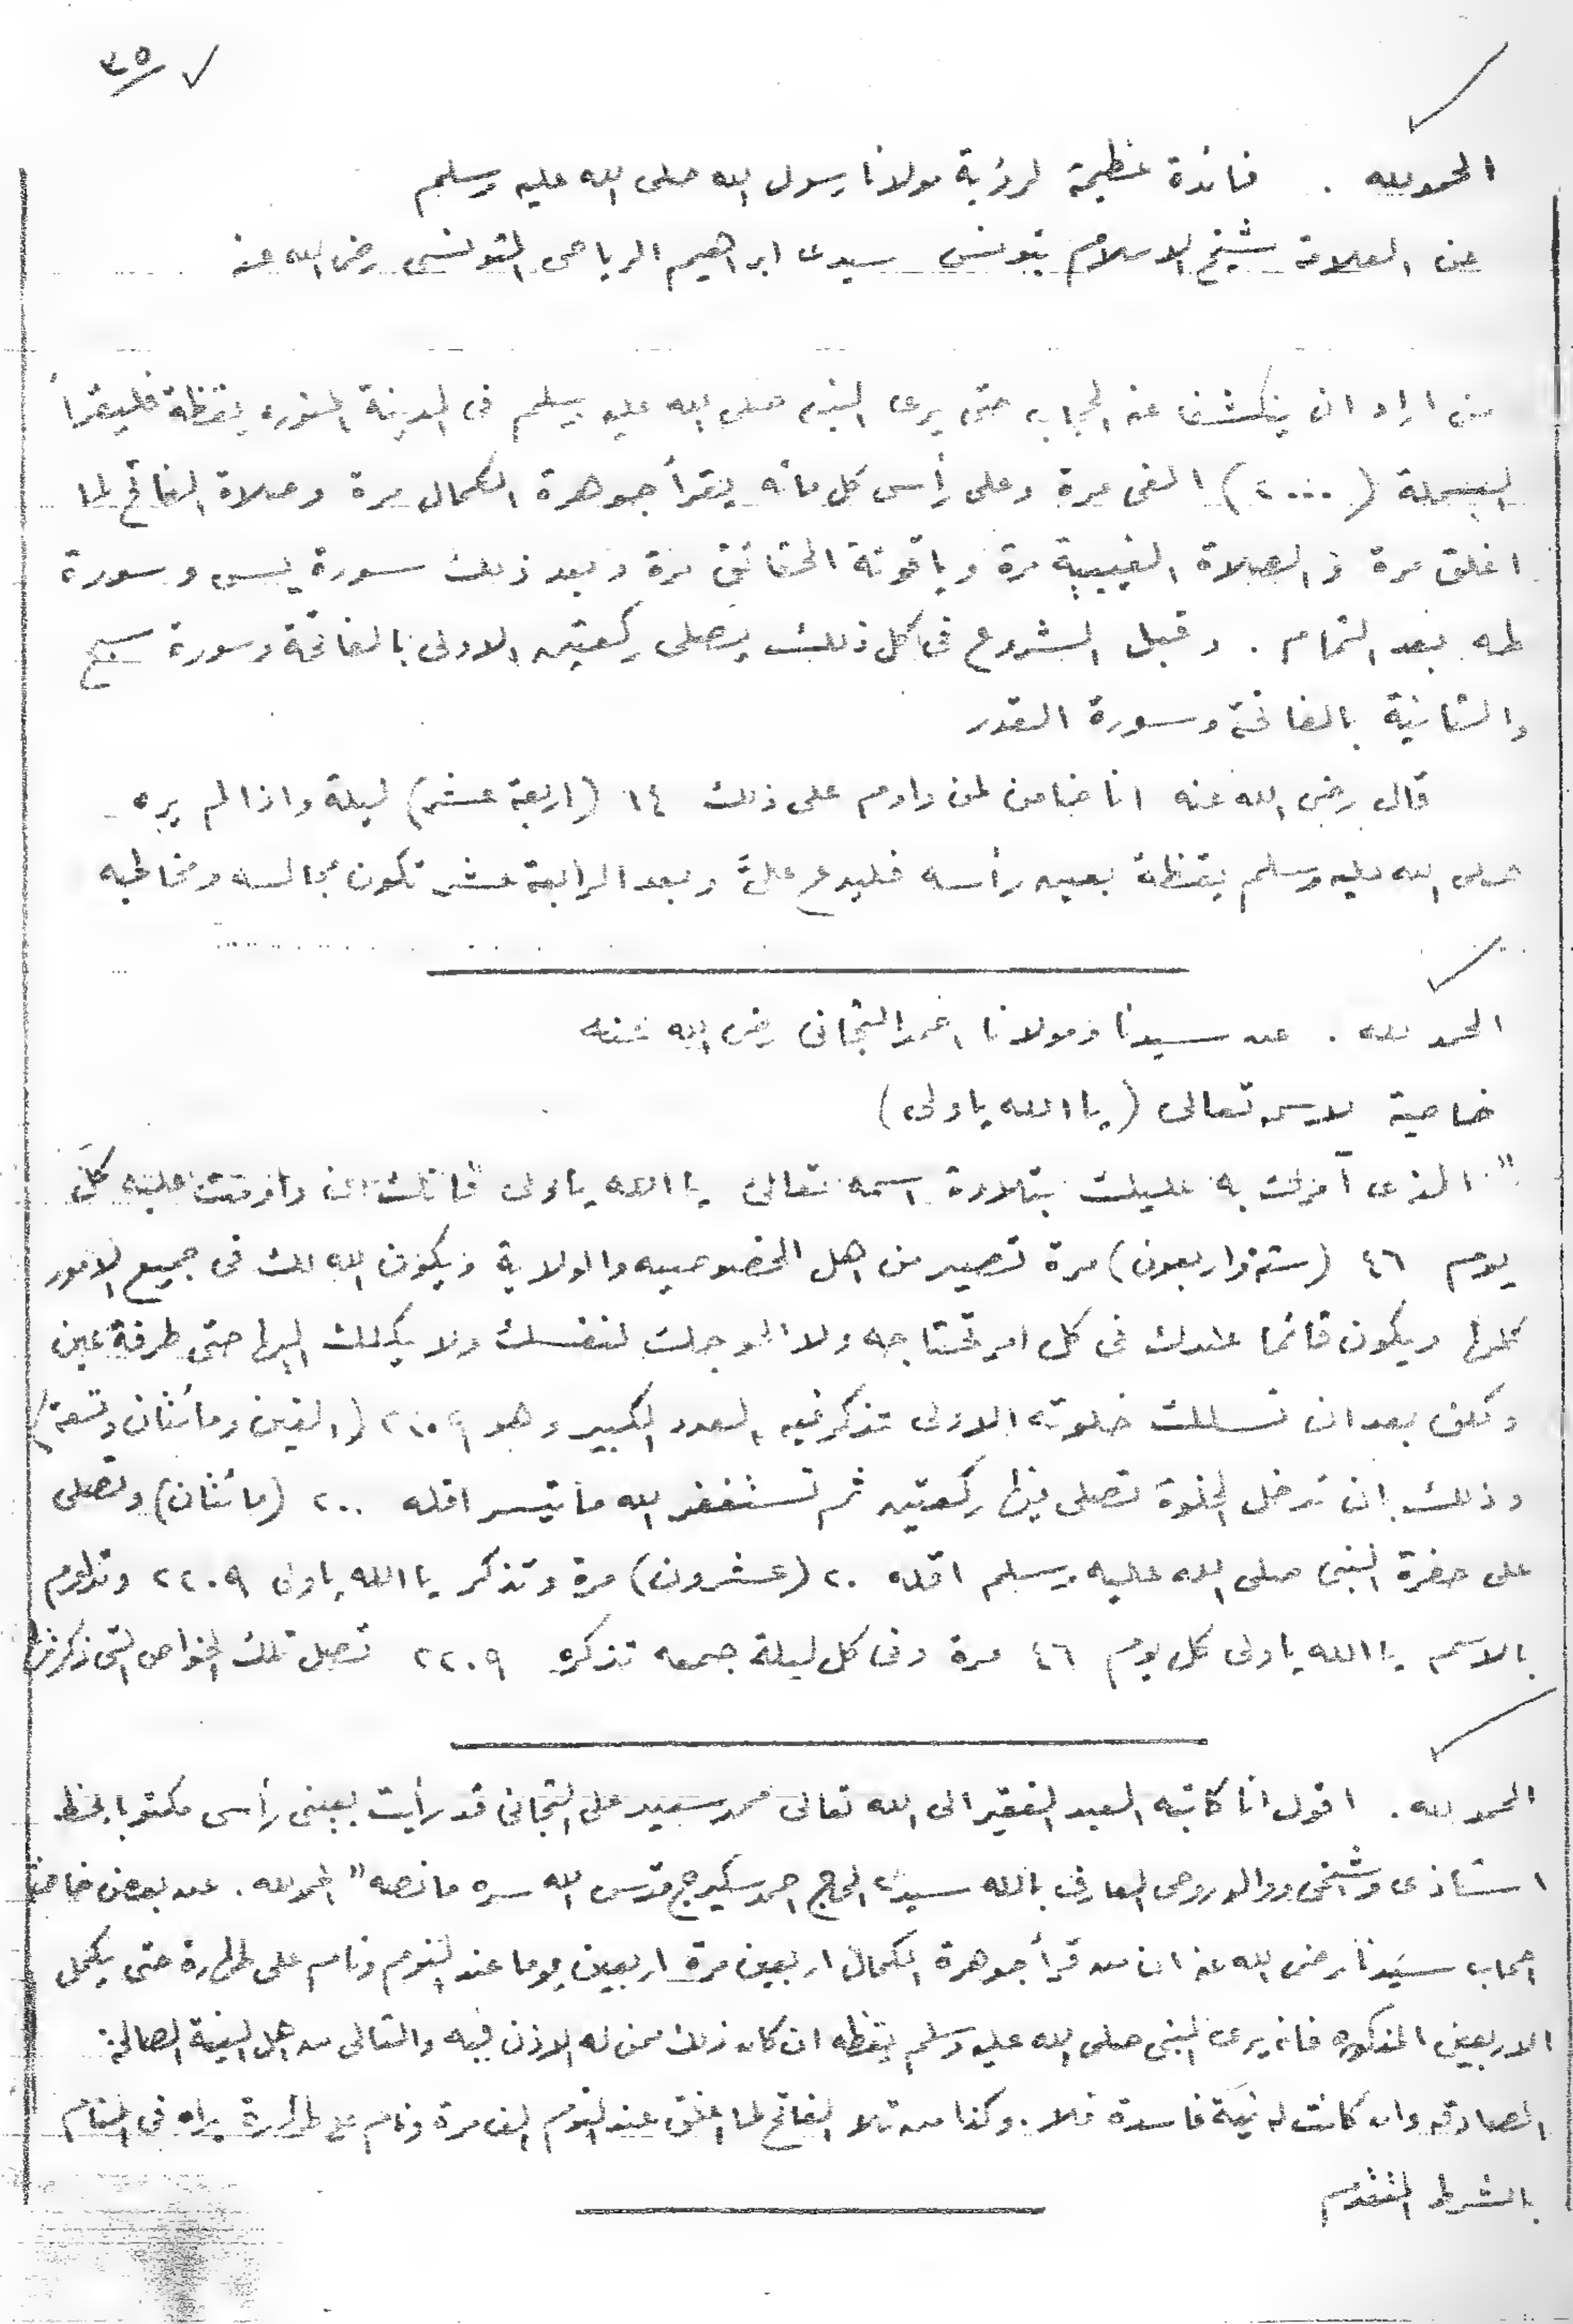 ٣٥
الحمد لله . فائدة عظيمة لرؤية مولانا رسول الله صلى الله عليه وسلم
عن العلامة شيخ الاسلام بتونس سيدى ابراهيم الرياحى التونسى رضى الله عنه
من اراد ان ينكشف عنه الحجاب حتى يرى النبى صلى الله عليه وسلم فى المدينة المنوره يقظة فليقرأ
البسملة (٢٠٠٠) الفى مرة وعلى رأس كل مائه يقرأ جوهرة الكمال مرة وصلاة الفاتح لما
اغلق مرة والصلاة الغيبية مرة وياقوتة الحقائق مرة وبعد ذلك سورة يس وسورة
طه بعد التمام . وقبل الشروع فى كل ذلك يصلى ركعتين الاولى بالفاتحة وسورة سبح
والثانية بالفاتحة وسورة القدر
قال رضى الله عنه انا ضامن لمن داوم على ذلك ١٤ (اربعة عشر) ليلة واذا لم يره
صلى الله عليه وسلم يقظة بعين رأسه فليدع علىَّ وبعد الرابعة عشر تكون مجالسه ومخاطبه
الحمد لله . عن سيدنا ومولانا احمد التجانى رضى الله عنه
خاصية لاسمه تعالى (يا الله يا ولى)
" الذى آمرك به عليك بتلاوة اسمه تعالى يا الله يا ولى فانك ان داومت عليه كل
يوم ٤٦ (ستة واربعون) مرة تصير من اهل الخصوصيه والولاية ويكون الله لك فى جميع الامور
كلها ويكون قائما عندك فى كل امر تحتاجه ولا احوجك لنفسك ولا يكلك اليها حتى طرفة عين
ولكن بعد ان تسلك خلوته الاولى تذكر فيه العدد الكبير وهو ٢٢٠٩ (الفين ومائتان وتسعة)
وذلك ان تدخل الخلوة تصلى فيها ركعتين ثم تستغفر الله ما تيسر اقله ٢٠٠ (مائتان) وتصلى
على حضرة النبى صلى الله عليه وسلم اقله ٢٠ (عشرون) مرة وتذكر يا الله يا ولى ٢٢٠٩ وتداوم
بالاسم يا الله يا ولى كل يوم ٤٦ مرة وفى كل ليلة جمعه تذكره ٢٢٠٩ تصل تلك الخواص التى ذكرتها
الحمد لله . اقول انا كاتبه العبد الفقير الى الله تعالى محمد سعيد على التجانى قد رأيت بعينى رأسى مكتوبا بخط
استاذى وشيخى ووالد روحى العارف بالله سيدى الحاج احمد سكيرج قدس الله سره ما نصه " الحمد لله . عن بعض خاصة
اصحاب سيدنا رضى الله عنه ان من قرأ جوهرة الكمال اربعين مرة اربعين يوما عند النوم ونام على طهارة حتى يكمل
الاربعين المذكوره فانه يرى النبى صلى الله عليه وسلم يقظه ان كان ذلك ممن له الاذن فيه والتالى من اهل النية الصالحة
الصادقه وان كانت له نية فاسدة فلا . وكذا من تلا الفاتح لما اغلق عند النوم الف مرة ونام على طهارة يراه فى المنام
بالشرط المتقدم